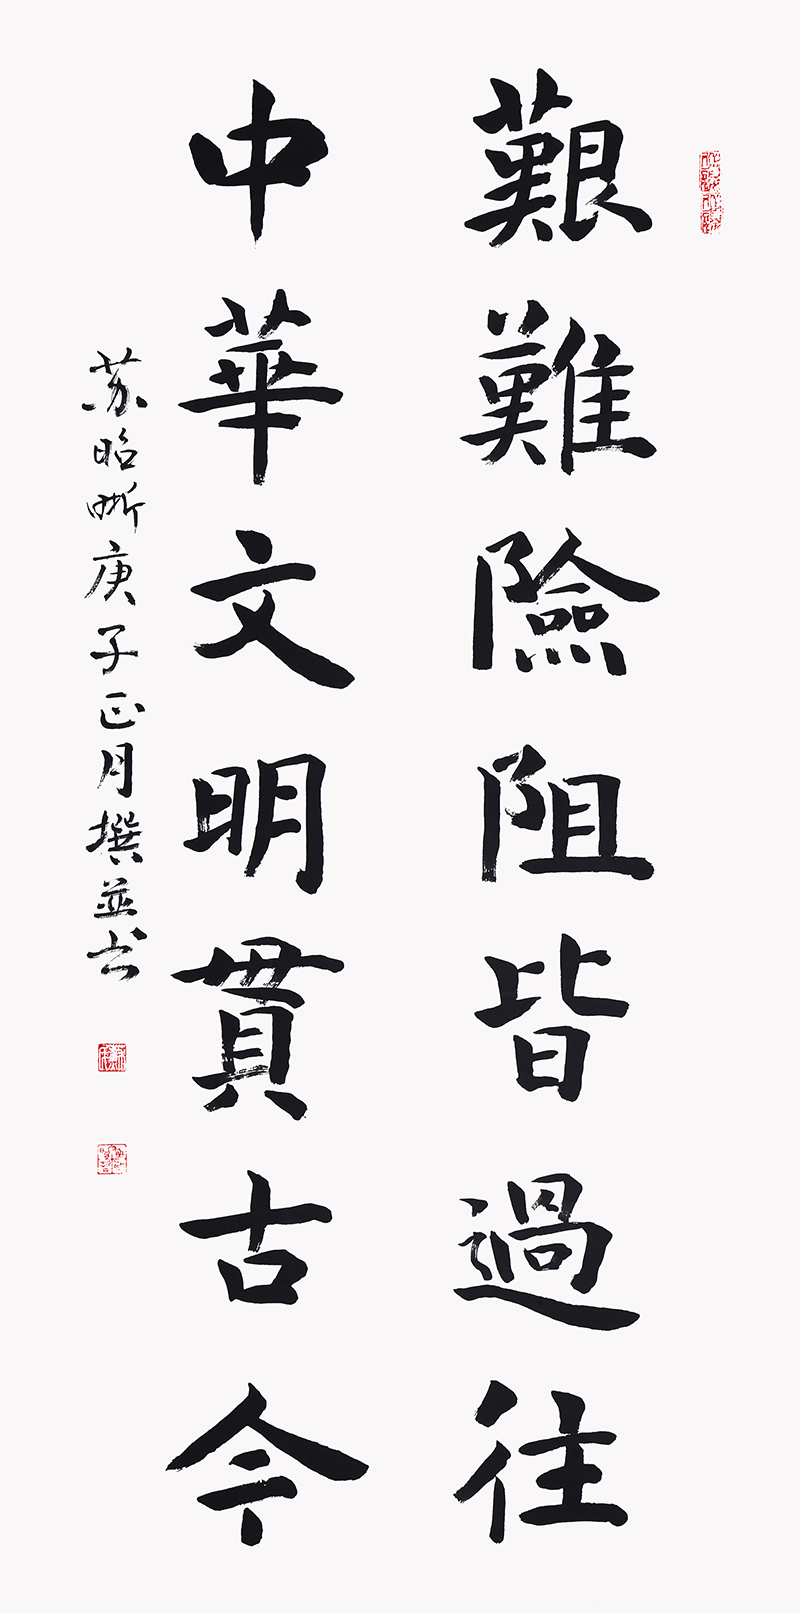 艱難險阻皆過往
中華文明貫古今
苏昭昕庚子正月撰並书